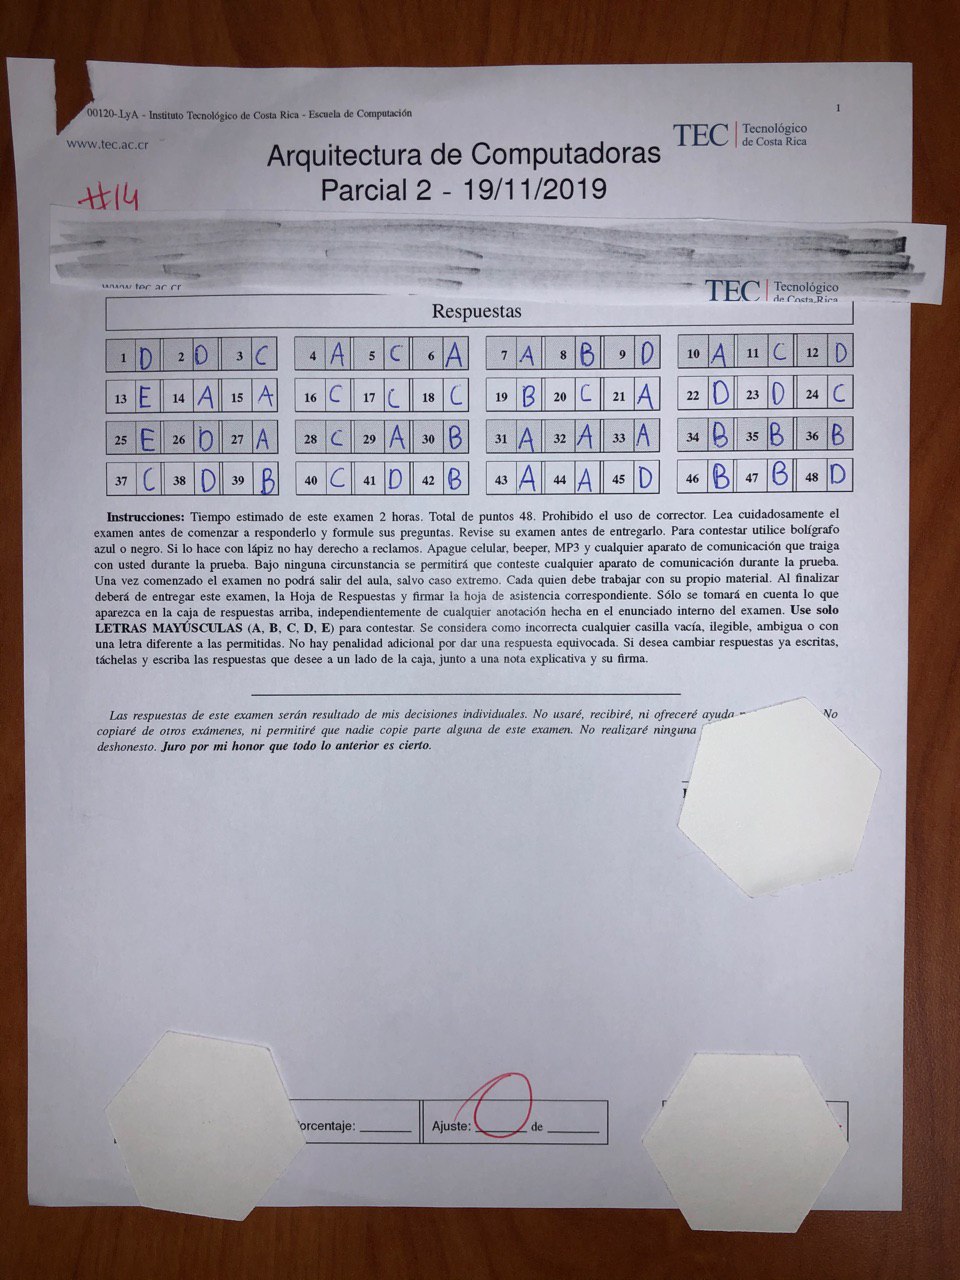 00120-.LyA - Instituto Tecnológico de Costa Rica - Escuela de Computación
1
www.tec.ac.cr
TEC | Tecnológico de Costa Rica
Arquitectura de Computadoras
Parcial 2 - 19/11/2019
#14
www.tec.ac.cr
TEC | Tecnológico de Costa Rica
Respuestas
1 D 2 D 3 C 4 A 5 C 6 A 7 A 8 B 9 D 10 A 11 C 12 D
13 E 14 A 15 A 16 C 17 C 18 C 19 B 20 C 21 A 22 D 23 D 24 C
25 E 26 D 27 A 28 C 29 A 30 B 31 A 32 A 33 A 34 B 35 B 36 B
37 C 38 D 39 B 40 C 41 D 42 B 43 A 44 A 45 D 46 B 47 B 48 D
Instrucciones: Tiempo estimado de este examen 2 horas. Total de puntos 48. Prohibido el uso de corrector. Lea cuidadosamente el
examen antes de comenzar a responderlo y formule sus preguntas. Revise su examen antes de entregarlo. Para contestar utilice bolígrafo
azul o negro. Si lo hace con lápiz no hay derecho a reclamos. Apague celular, beeper, MP3 y cualquier aparato de comunicación que traiga
con usted durante la prueba. Bajo ninguna circunstancia se permitirá que conteste cualquier aparato de comunicación durante la prueba.
Una vez comenzado el examen no podrá salir del aula, salvo caso extremo. Cada quien debe trabajar con su propio material. Al finalizar
deberá de entregar este examen, la Hoja de Respuestas y firmar la hoja de asistencia correspondiente. Sólo se tomará en cuenta lo que
aparezca en la caja de respuestas arriba, independientemente de cualquier anotación hecha en el enunciado interno del examen. Use solo
LETRAS MAYÚSCULAS (A, B, C, D, E) para contestar. Se considera como incorrecta cualquier casilla vacía, ilegible, ambigua o con
una letra diferente a las permitidas. No hay penalidad adicional por dar una respuesta equivocada. Si desea cambiar respuestas ya escritas,
táchelas y escriba las respuestas que desee a un lado de la caja, junto a una nota explicativa y su firma.
Las respuestas de este examen serán resultado de mis decisiones individuales. No usaré, recibiré, ni ofreceré ayuda No
copiaré de otros exámenes, ni permitiré que nadie copie parte alguna de este examen. No realizaré ninguna
deshonesto. Juro por mi honor que todo lo anterior es cierto.
orcentaje: ______ Ajuste: ______ de ______